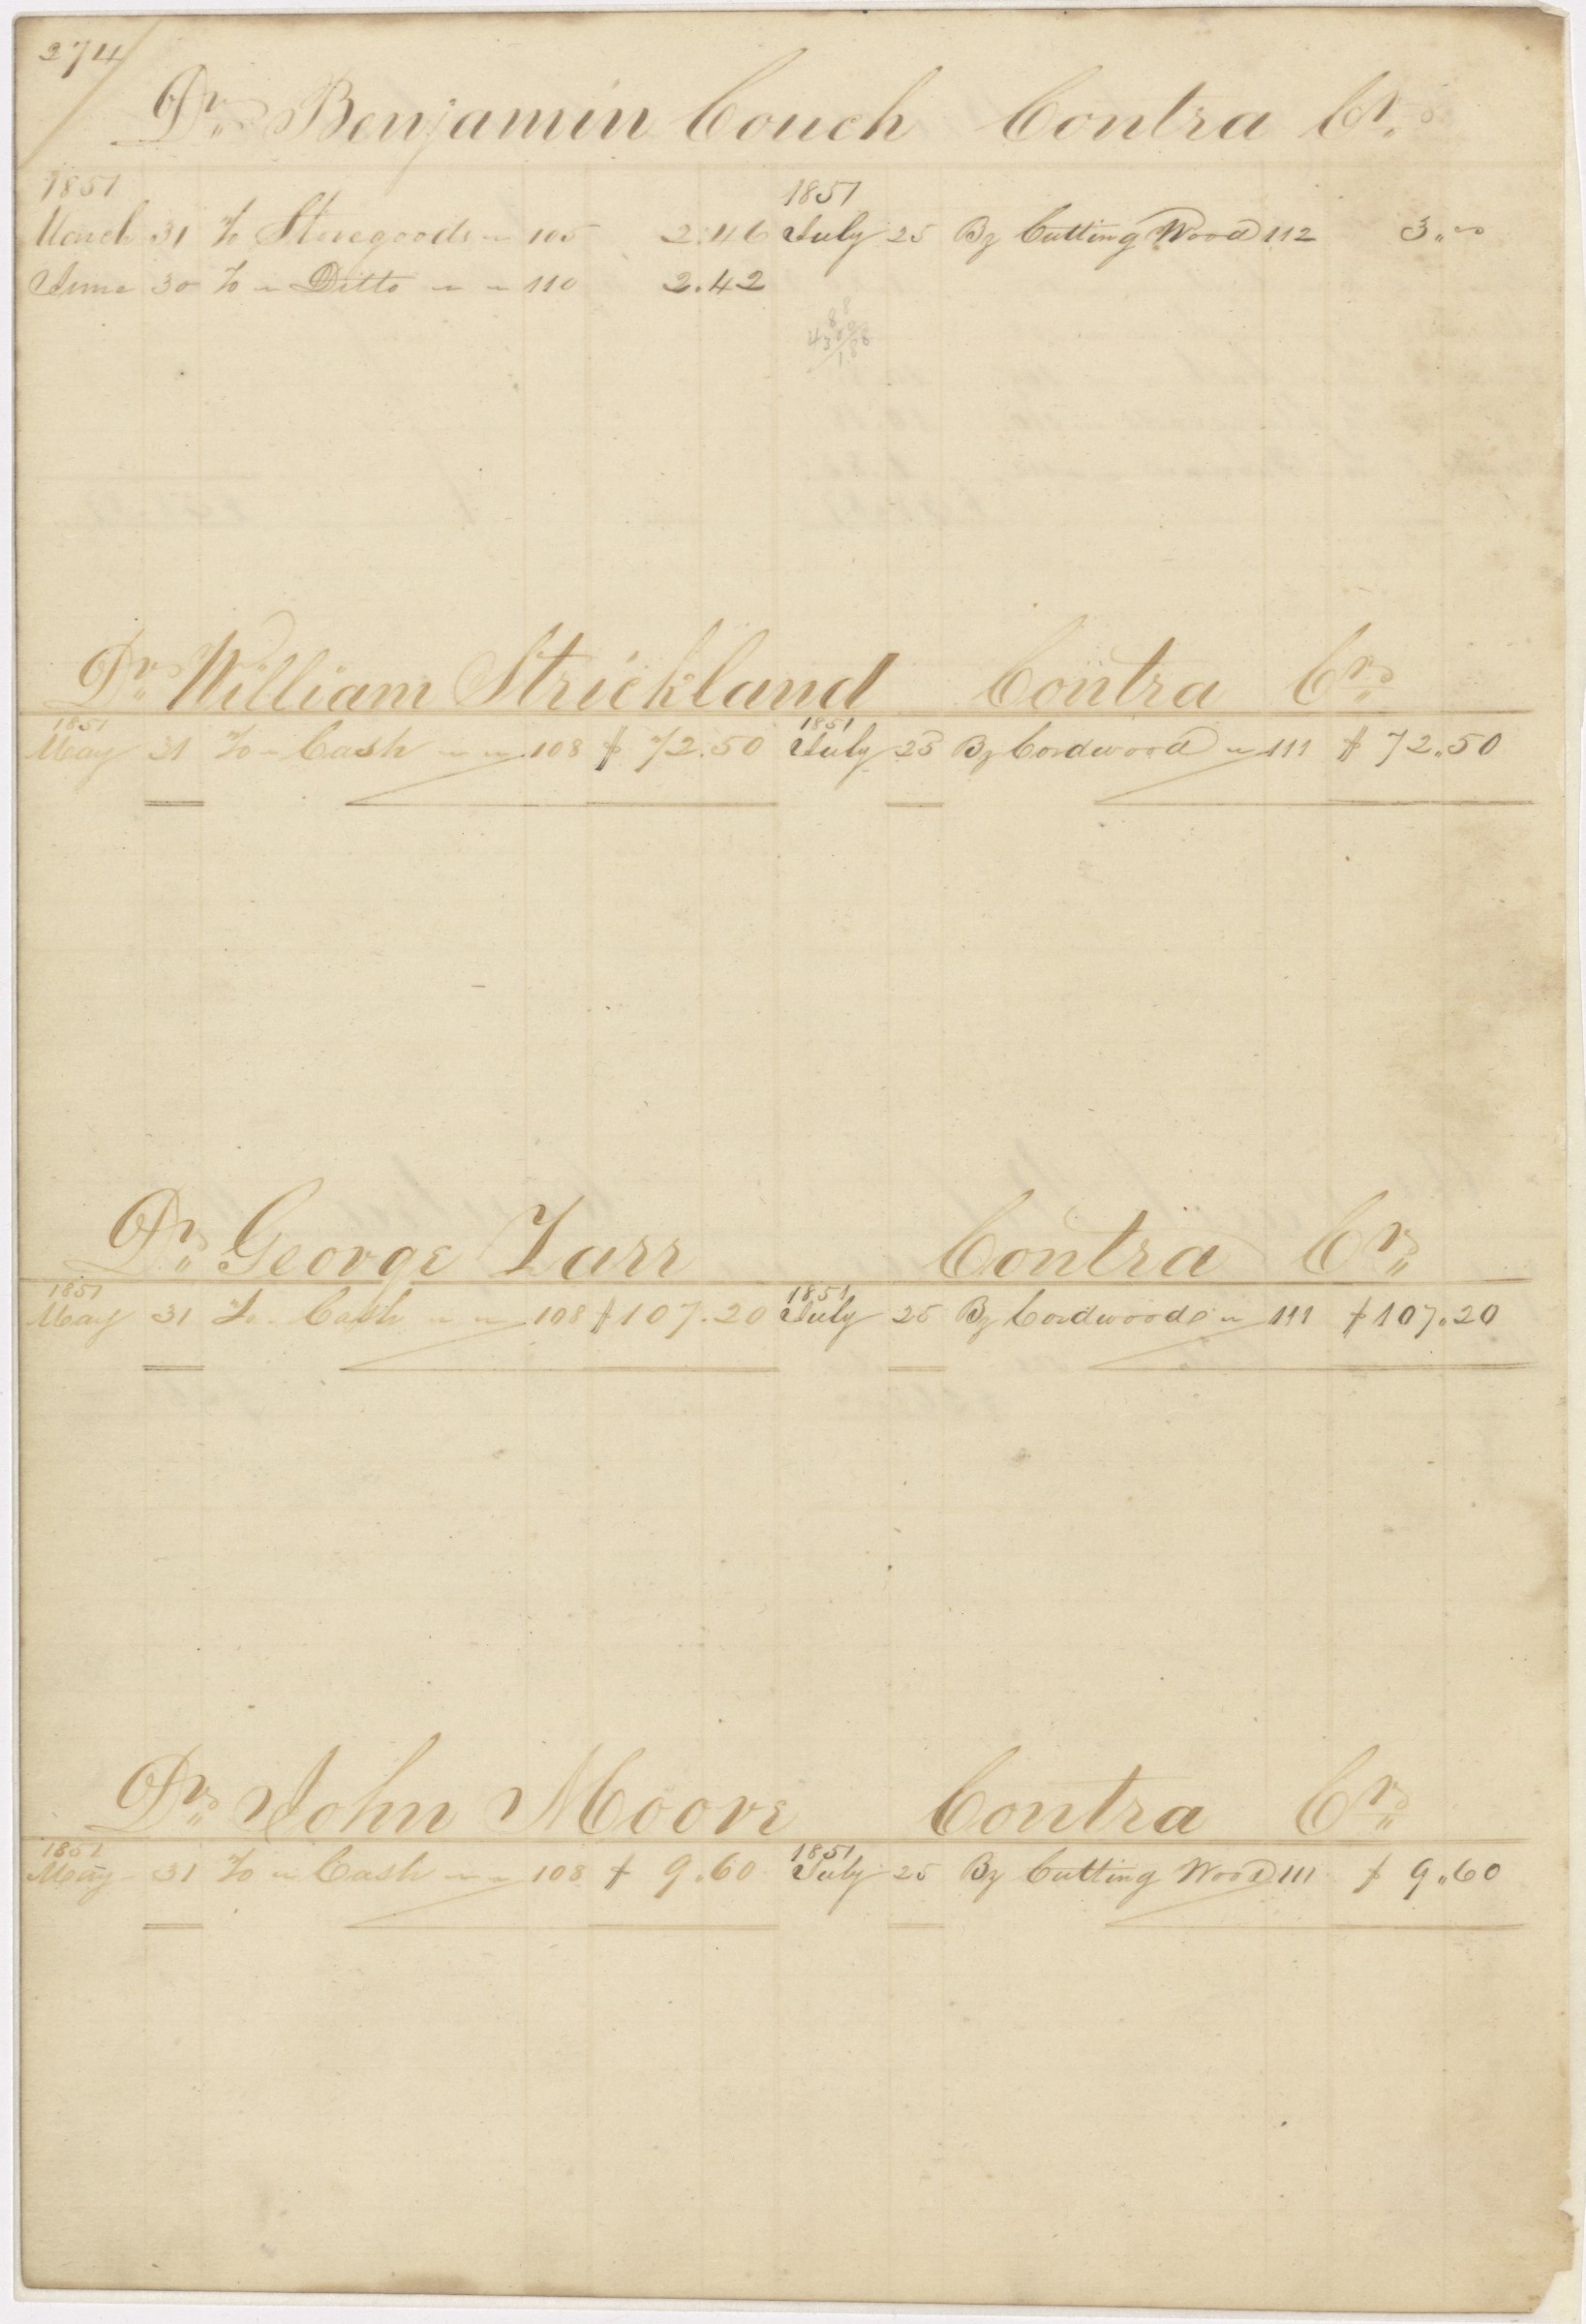 274
Dr. Benjamin Couch Contra Cr.
1851 1851
March 31 To Storegoods " 105 2.46 July 25 By Cutting Wood 112 3 "
June 30 To " Ditto " " 110 2.42
4.88
3.00
1.88
Dr. William Strickland Contra Cr.
1851 1851
May 31 To " Cash " " 108 $ 72.50 July 25 By Cordwood " 111 $ 72.50
Dr. George Tarr Contra Cr.
1851 1851
May 31 To " Cash " " 108 $ 107.20 July 25 By Cordwood " 111 $ 107.20
Dr. John Moore Contra Cr.
1851 1851
May 31 To " Cash " " 108 $ 9.60 July 25 By Cutting Wood 111 $ 9.60